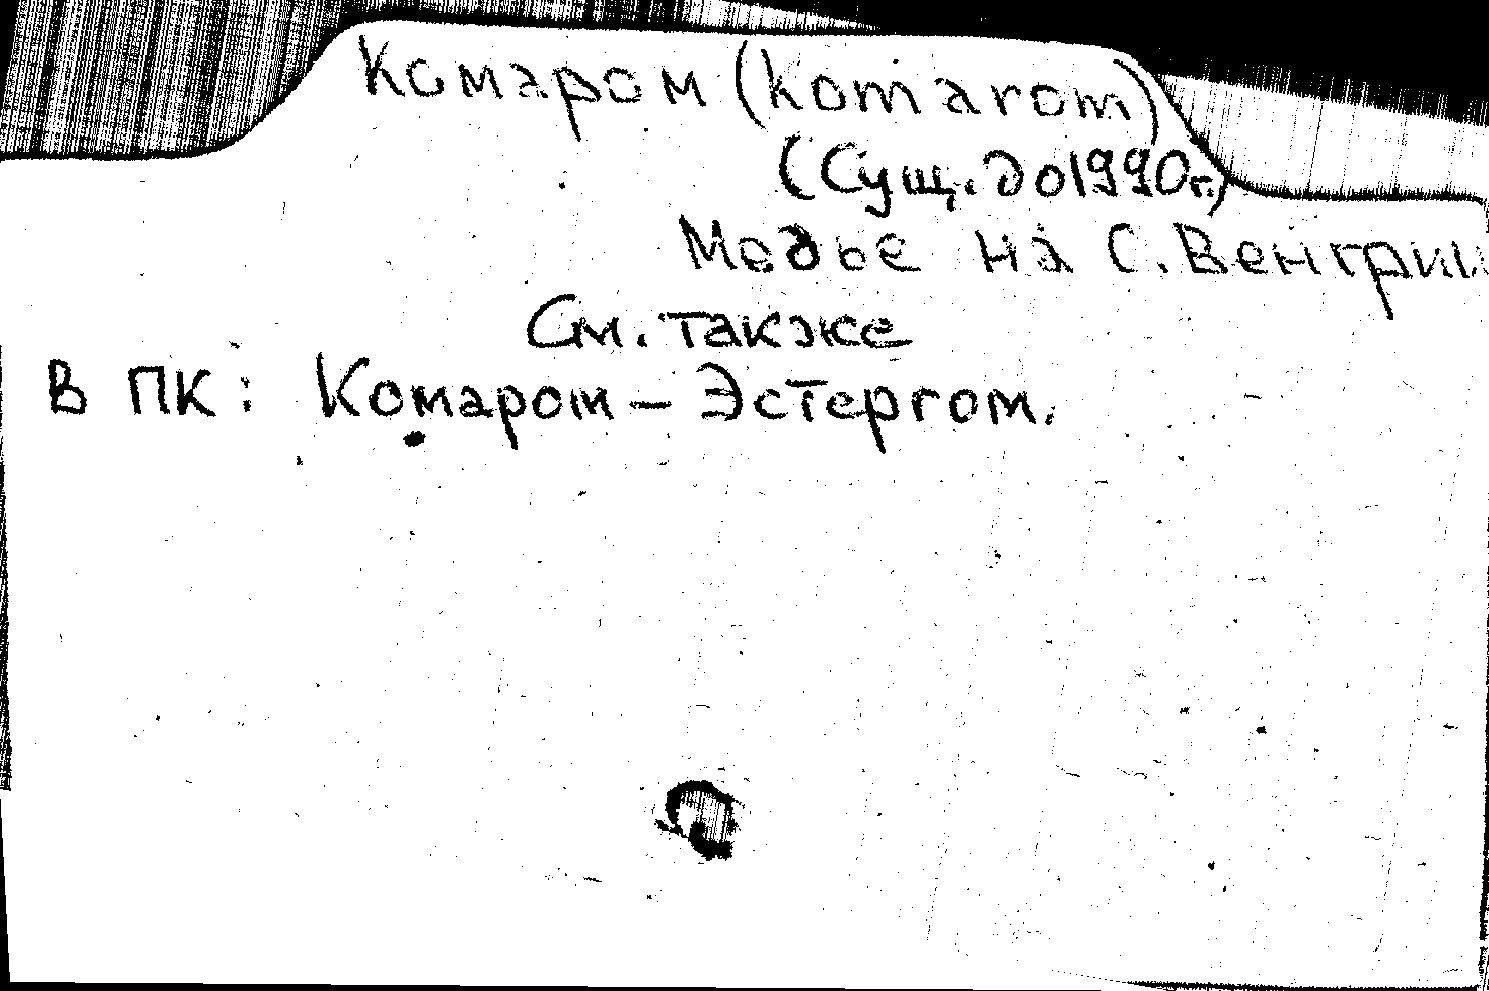 Комаром (komarom)
(Сущ. до 1990г.)
Медье на С. Венгрии
См. также
В ПК: Комаром – Эстергом.